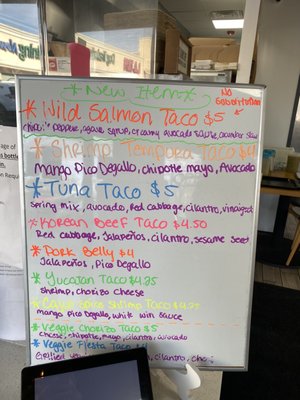 * New Item *
No Substitution
* Wild Salmon Taco $5
pepper, agave syrup, creamy avocado sauce, cucumber slaw
* Shrimp Tempora Taco $4
Mango Pico Degallo, chipotle mayo, Avocado
* Tuna Taco $5
Spring mix, avocado, Red cabbage, cilantro,
* Korean Beef Taco $4.50
Red cabbage, Jalapeños, cilantro, sesame seed
* Pork Belly $4
Jalapeños, Pico Degallo
* Yucatan Taco $4.25
Shrimp, chorizo Cheese
* Cajun Spice Shrimp Taco $4.25
Mango pico Degallo, white win sauce
* Veggie Chorizo Taco $5
Cheese, chipotle, mayo, cilantro, avocado
* Veggie Fiesta Taco
Grilled cilantro,